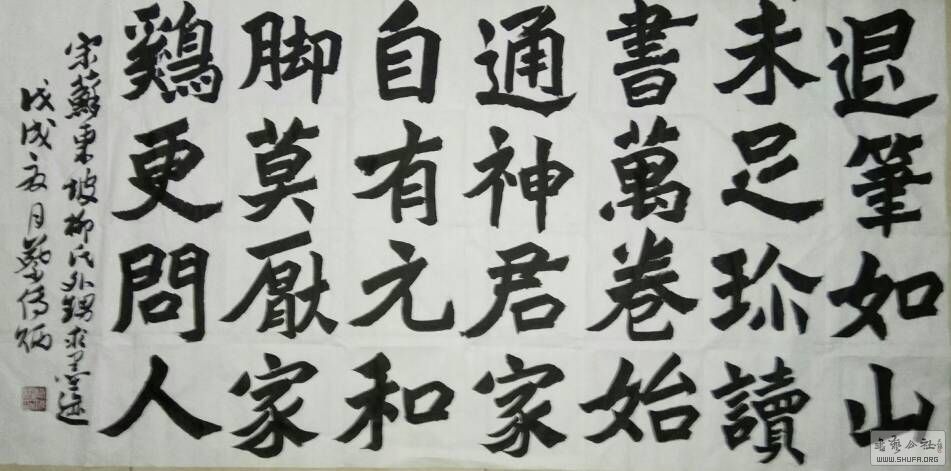 退筆如山
未足珎讀
書萬卷始
通神君家
自有元和
脚莫厭家
鷄更問人
宋蘇東坡柳氏外甥求筆迹
戊戌夏月蔡傳炳
WWW.SHUFA.ORG